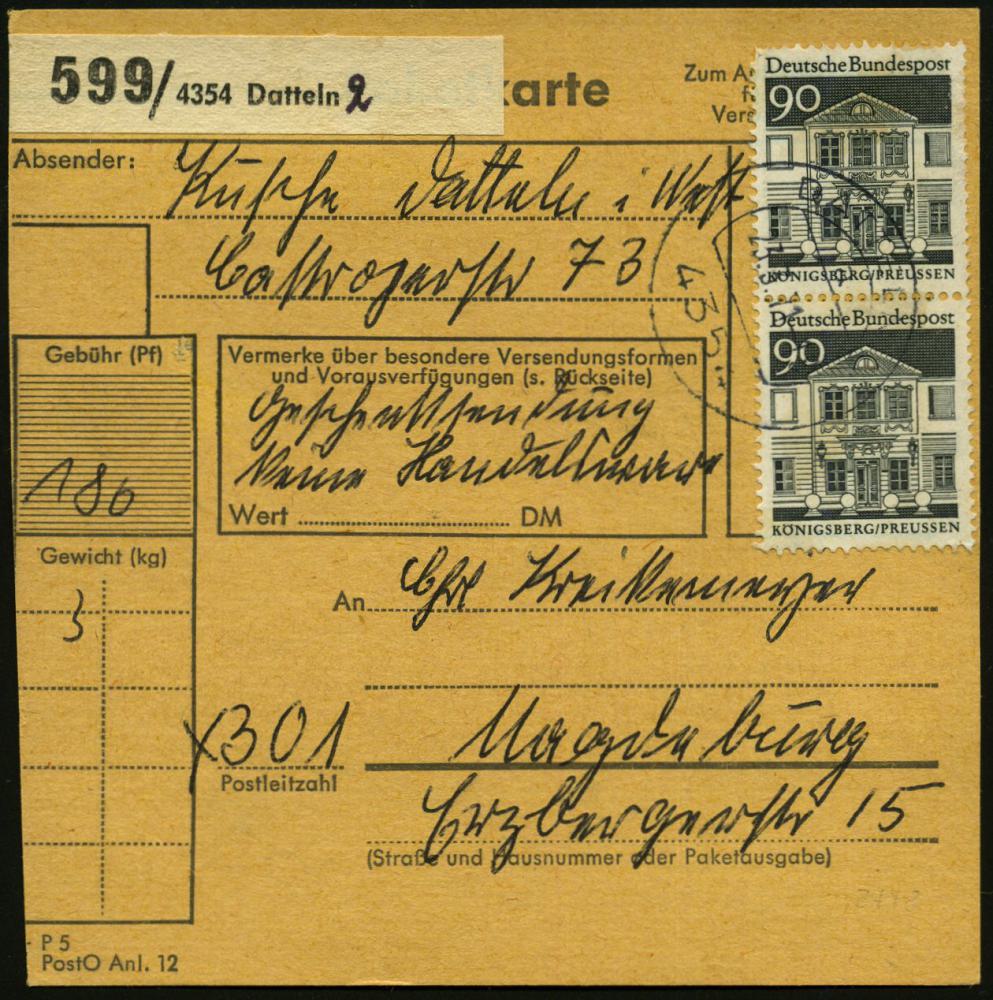 599/ 4354 Datteln 2
karte
Zum A
Vers
Deutsche Bundespost
90
KÖNIGSBERG/PREUSSEN
Deutsche Bundespost
90
KÖNIGSBERG/PREUSSEN
4354
Absender: Kusche Datteln i West
Castroperstr 73
Gebühr (Pf)
180
Vermerke über besondere Versendungsformen
und Vorausverfügungen (s. Rückseite)
Geschenksendung
keine Handelsware
Wert DM
Gewicht (kg)
3
An Chr Kreikemeyer
X301 Magdeburg
Postleitzahl
Erzbergerstr 15
(Straße und Hausnummer oder Paketausgabe)
P 5
PostO Anl. 12